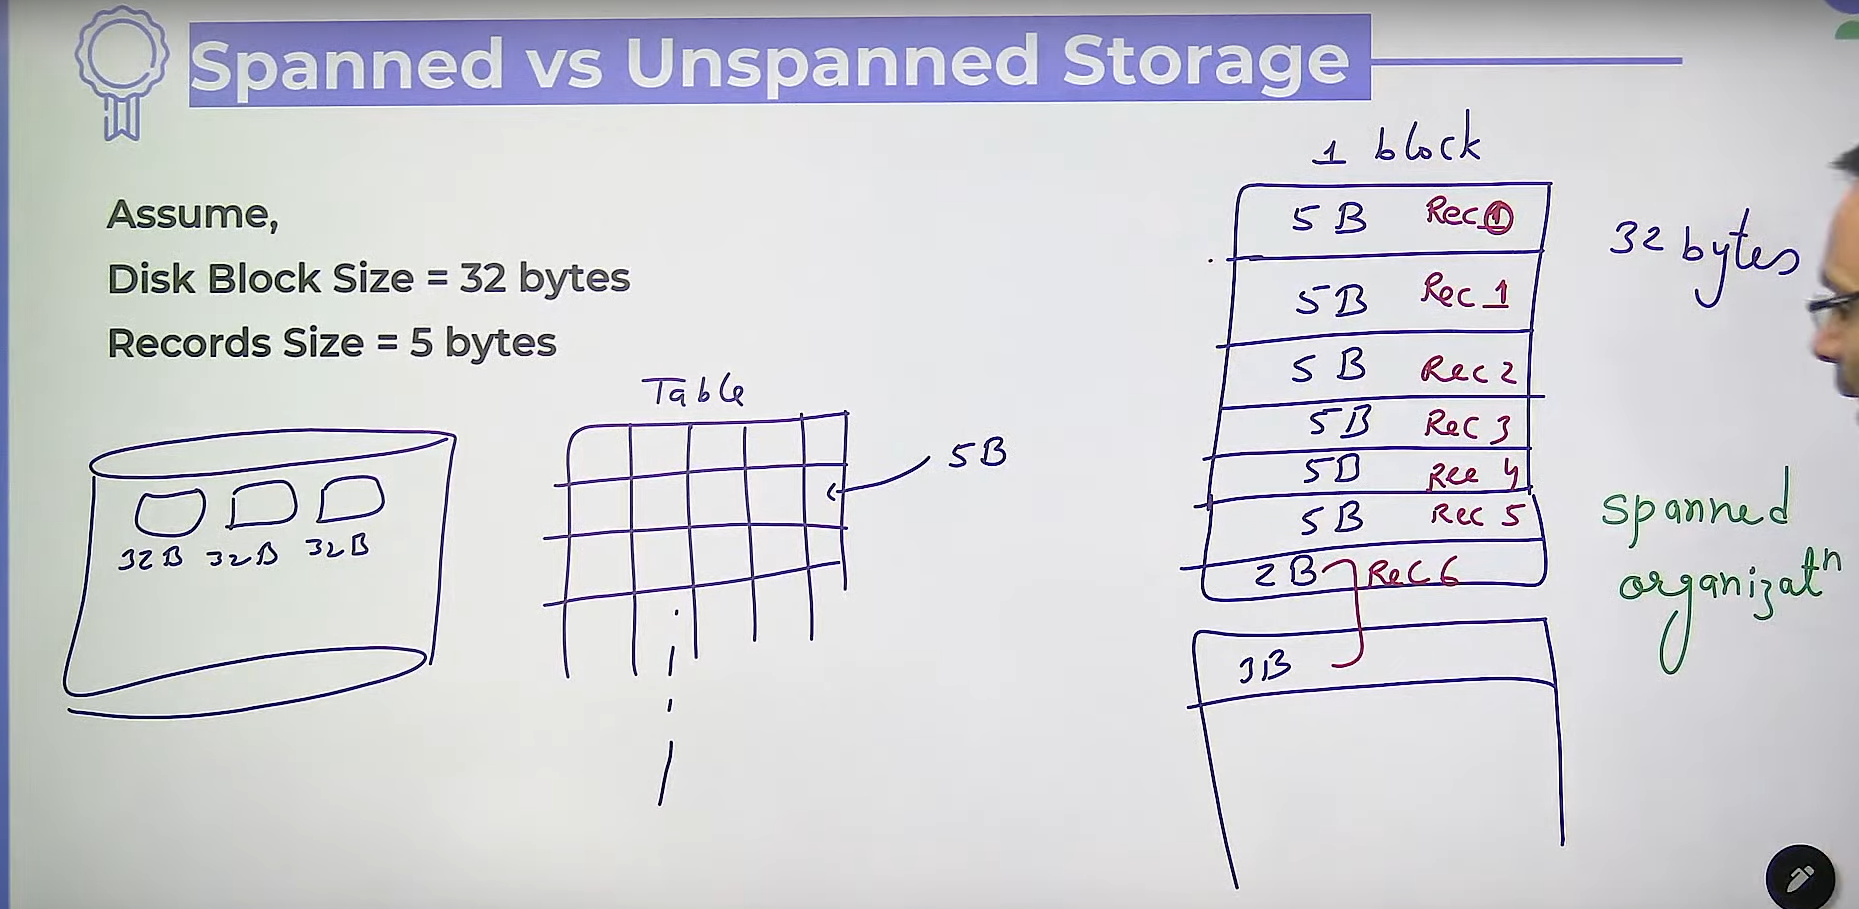 Spanned vs Unspanned Storage
Assume,
Disk Block Size = 32 bytes
Records Size = 5 bytes
32B 32B 32B
Table
5B
1 block
5B Rec 0
5B Rec 1
5B Rec 2
5B Rec 3
5B Rec 4
5B Rec 5
2B Rec 6
3B
32 bytes
spanned
organizatn